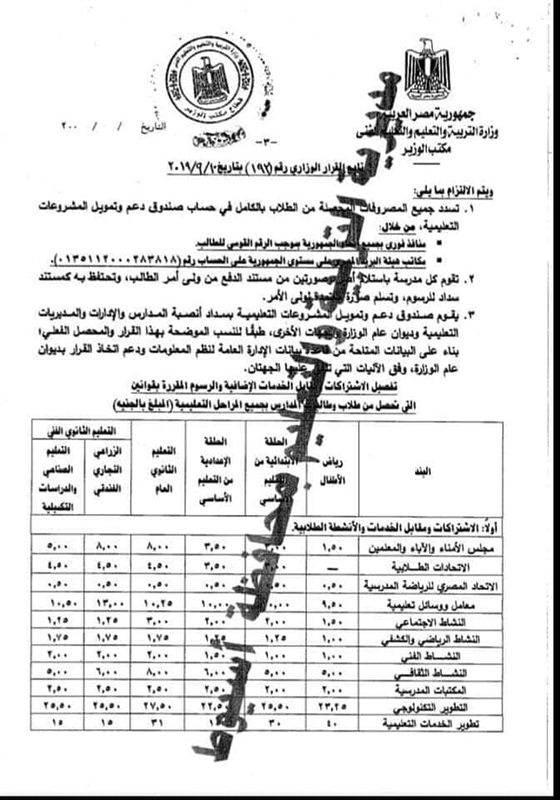 جمهورية مصر العربية
وزارة التربية والتعليم والتعليم الفنى
مكتب الوزير
وزارة التربية والتعليم والتعليم الفني
قطاع مكتب الوزير
التاريخ / / ٢٠٠
-٣-
تابع القرار الوزاري رقم (١٩٢) بتاريخ ٢٠١٩/٩/١٠
ويتم الالتزام بما يلي:
١. تسدد جميع المصروفات المحصلة من الطلاب بالكامل في حساب صندوق دعم وتمويل المشروعات
التعليمية، من خلال:
▪ منافذ فوري بجميع أنحاء الجمهورية بموجب الرقم القومي للطالب.
▪ مكاتب هيئة البريد المصري على مستوي الجمهورية على الحساب رقم (٠١٣٥١١٢٠٠٠٢٨٣٨١٨).
٢. تقوم كل مدرسة باستلام أصل وصورتين من مستند الدفع من ولى أمر الطالب، وتحتفظ به كمستند
سداد للرسوم، وتسلم صورة معتمدة لولى الأمر.
٣. يقوم صندوق دعم وتمويل المشروعات التعليمية بسداد أنصبة المدارس والإدارات والمديريات
التعليمية وديوان عام الوزارة والجهات الأخرى، طبقًا للنسب الموضحة بهذا القرار والمحصل الفعلي؛
بناء على البيانات المتاحة من قاعدة بيانات الإدارة العامة لنظم المعلومات ودعم اتخاذ القرار بديوان
عام الوزارة، وفق الآليات التي تتفق عليها الجهتان.
تفصيل الاشتراكات ومقابل الخدمات الإضافية والرسوم المقررة بقوانين
التي تحصل من طلاب وطالبات المدارس بجميع المراحل التعليمية (المبلغ بالجنيه)
البند رياض الأطفال الحلقة الابتدائية من التعليم الأساسي الحلقة الإعدادية من التعليم الأساسي التعليم الثانوي العام التعليم الثانوي الفني
الزراعي التجاري الفندقي التعليم الصناعي والدراسات التكميلية
أولًا: الاشتراكات ومقابل الخدمات والأنشطة الطلابية.
مجلس الأمناء والآباء والمعلمين ١,٥٠ ٣,٥٠ ٨,٠٠ ٨,٠٠ ٥,٠٠
الاتحادات الطلابية — ٣,٥٠ ٤,٥٠ ٤,٥٠ ٤,٥٠
الاتحاد المصري للرياضة المدرسية ٠,٥٠ ٠,٥٠ ٠,٥٠ ٠,٥٠
معامل ووسائل تعليمية ٩,٥٠ ١٠,٠٠ ١٠,٢٥ ١٣,٠٠ ١٠,٥٠
النشاط الاجتماعي ١,٥٠ ٢,٠٠ ٢,٠٠ ٣,٠٠ ١,٢٥ ١,٢٥
النشاط الرياضي والكشفي ١,٠٠ ١,٢٥ ١,٧٥ ١,٧٥ ١,٧٥
النشاط الفني ١,٠٠ ١,٠٠ ١,٥٠ ٢,٠٠ ٢,٠٠ ٢,٠٠
النشاط الثقافي ٥,٠٠ ٥,٠٠ ٨,٠٠ ٦,٠٠ ٥,٠٠
المكتبات المدرسية ٢,٠٠ ٢,٠٠ ٢,٥٠ ٢,٥٠ ٢,٥٠
التطوير التكنولوجي ٢٣,٢٥ ٢٥,٥٠ ٢٢,٥٠ ٢٧,٥٠ ٢٥,٥٠ ٢٥,٥٠
تطوير الخدمات التعليمية ٤٠ ٣٠ ٣١ ١٥ ١٥
مديرية التربية والتعليم بمحافظة أسيوط